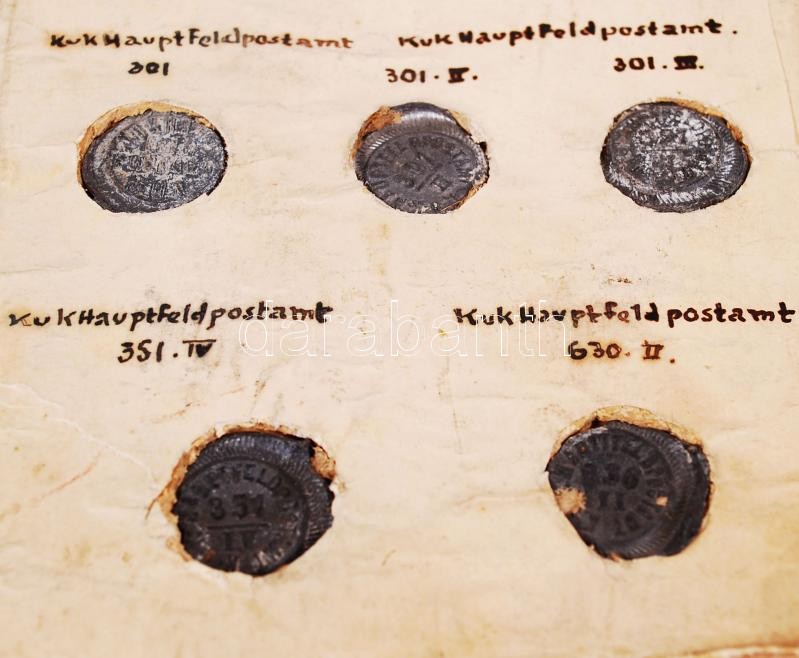 KukHauptFeldpostamt
301
KukHauptFeldpostamt.
301. II.
301. III.
KukHauptfeldpostamt
351. IV
KukHauptfeldpostamt
630. II.
darabanth
301
II
351
IV
630
II